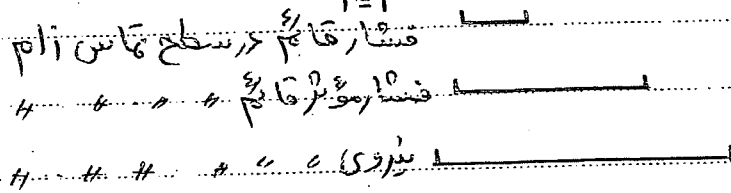 فشار قائم در سطح تماس زام
فشار مؤثر قائم " " " "
نیروی " " " " " "